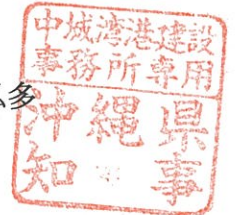 中城湾港建設
事務所専用
多
沖縄県
知事